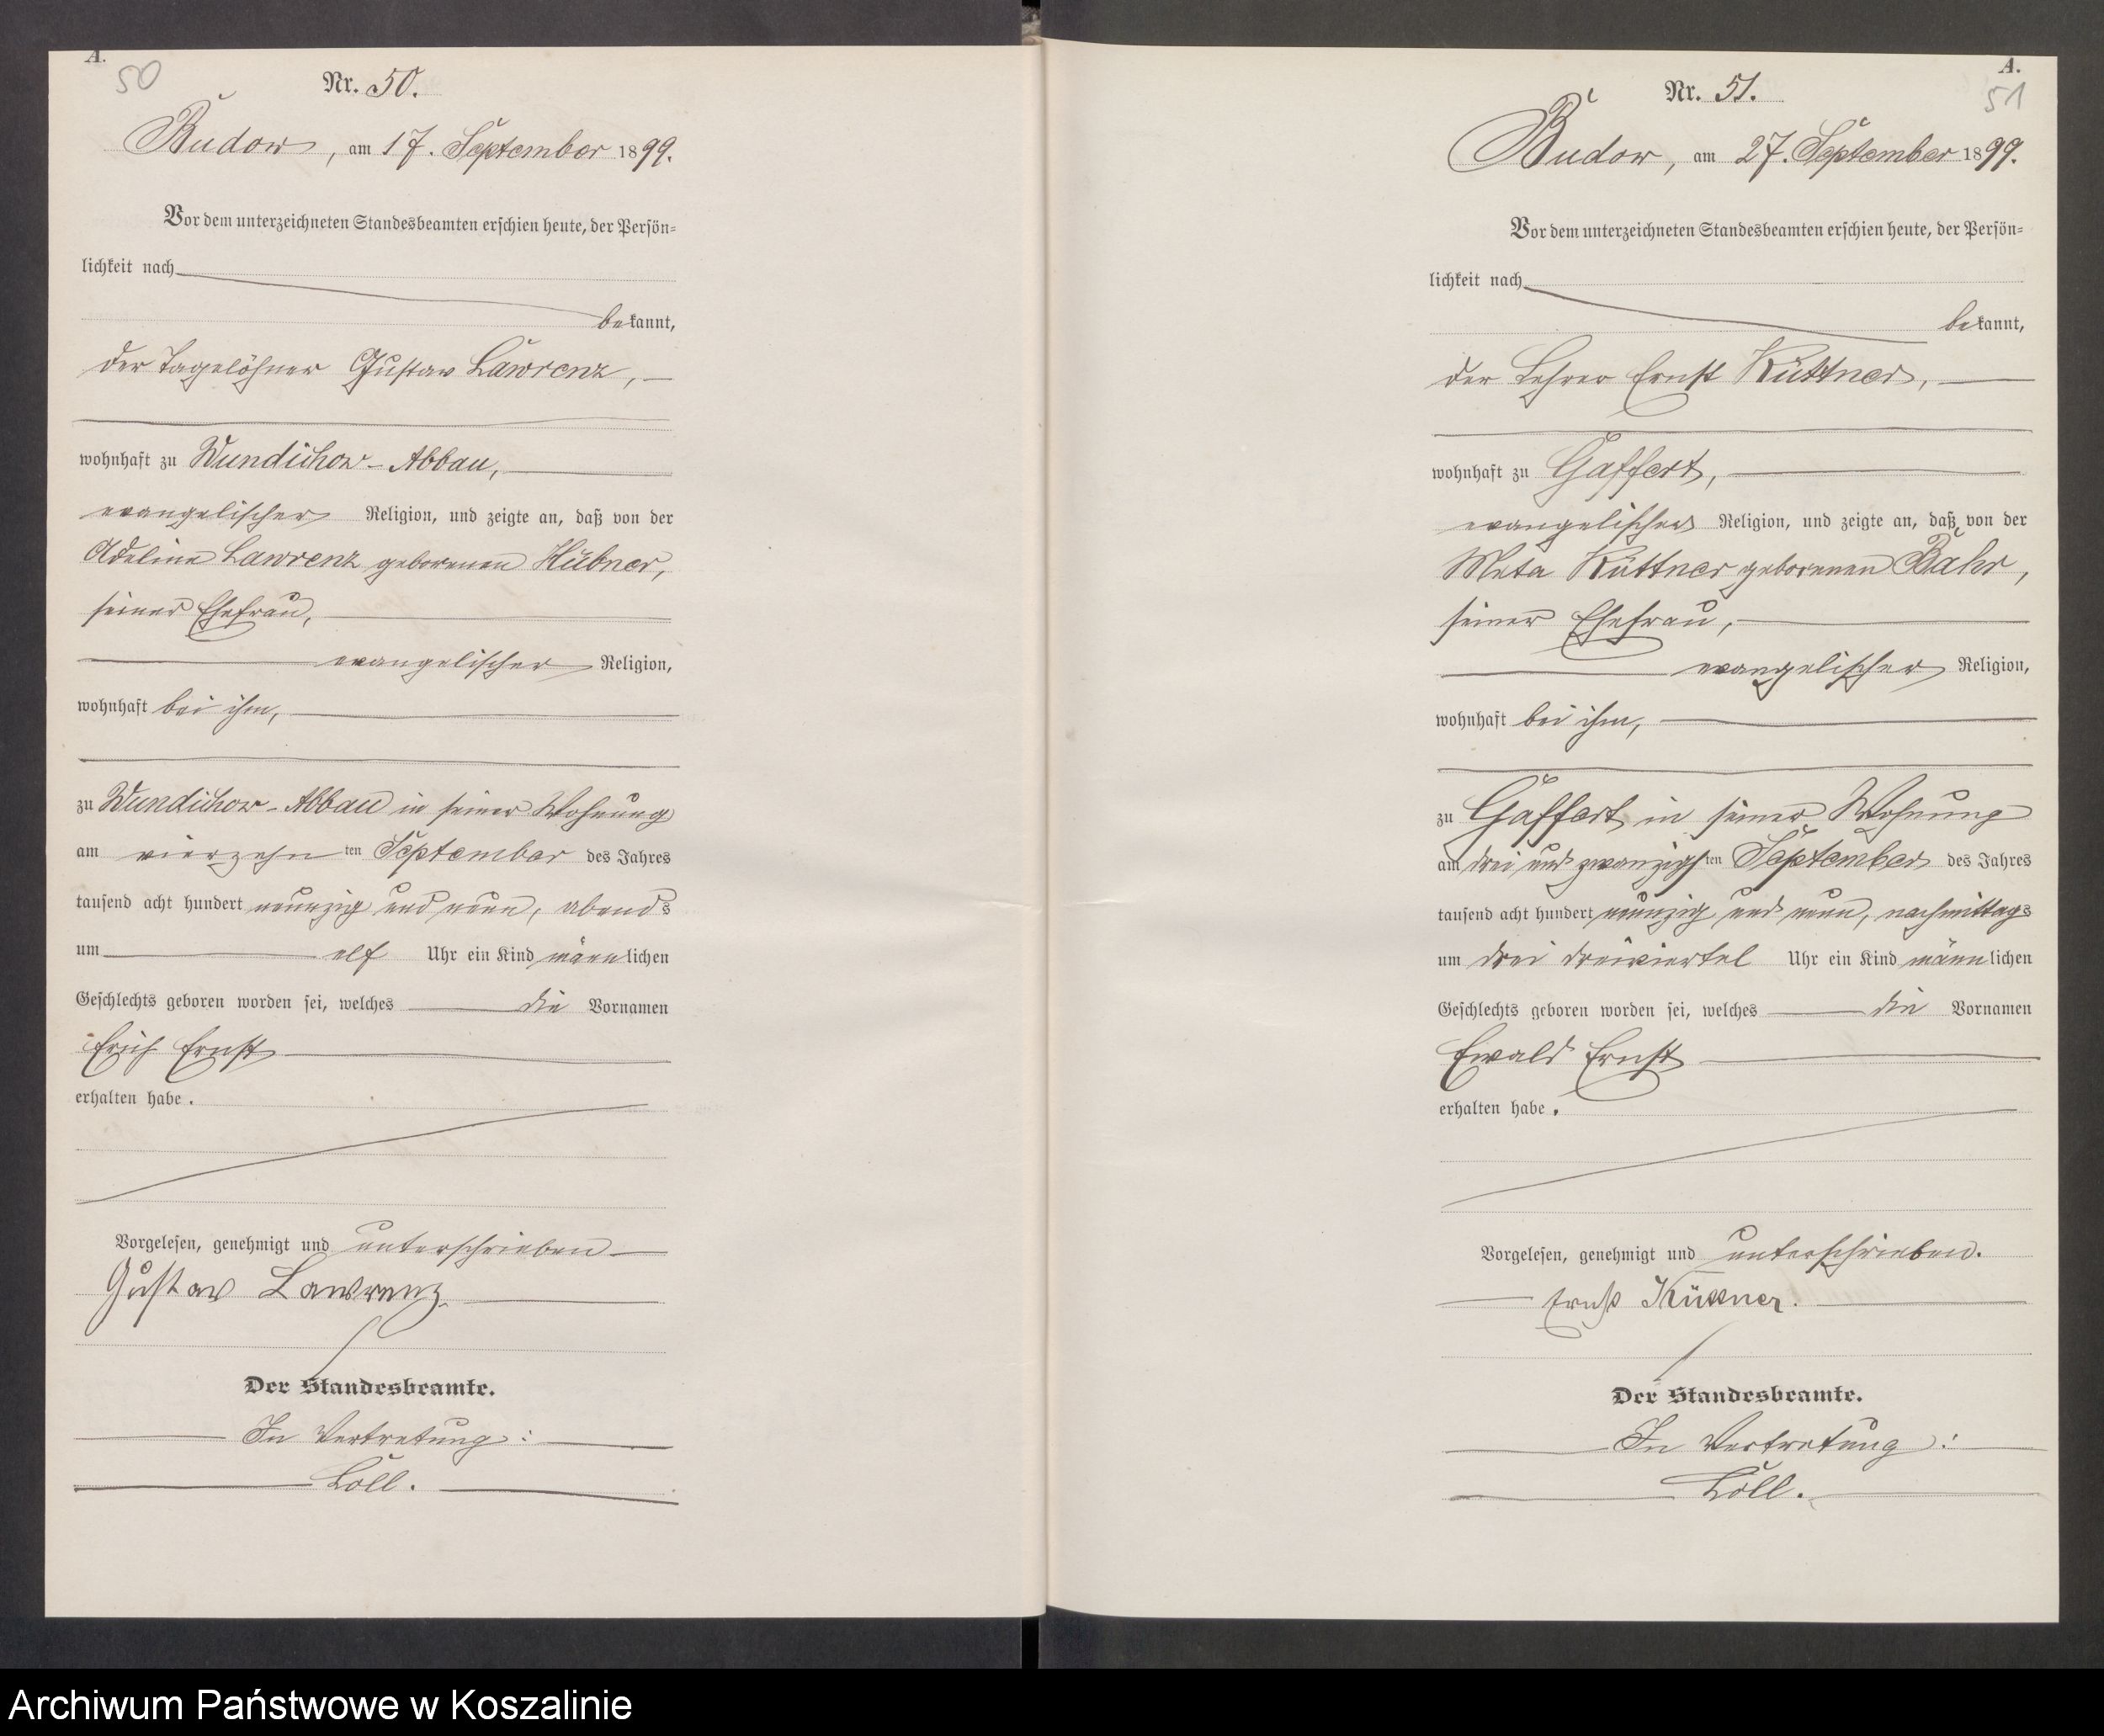 A.
50
Nr. 50.
Budow, am 17. September 1899.
Vor dem unterzeichneten Standesbeamten erschien heute, der Persön-
lichkeit nach
bekannt,
der Tagelöhner Gustav Lawrenz,
wohnhaft zu Wundichow-Abbau,
evangelischer Religion, und zeigte an, daß von der
Adeline Lawrenz geborenen Hübner,
seiner Ehefrau,
evangelischer Religion,
wohnhaft bei ihm,
zu Wundichow-Abbau in seiner Wohnung
am vierzehnten September des Jahres
tausend acht hundert neunzig und neun, abends
um elf Uhr ein Kind männlichen
Geschlechts geboren worden sei, welches die Vornamen
Erich Ernst
erhalten habe.
Vorgelesen, genehmigt und unterschrieben
Gustav Lawrenz
Der Standesbeamte.
In Vertretung:
Löll.
A.
51
Nr. 51.
Budow, am 27. September 1899.
Vor dem unterzeichneten Standesbeamten erschien heute, der Persön-
lichkeit nach
bekannt,
der Lehrer Ernst Küttner,
wohnhaft zu Gaffert,
evangelischer Religion, und zeigte an, daß von der
Meta Küttner geborenen Bahr,
seiner Ehefrau,
evangelischer Religion,
wohnhaft bei ihm,
zu Gaffert in seiner Wohnung
am drei und zwanzigsten September des Jahres
tausend acht hundert neunzig und neun, nachmittags
um drei dreiviertel Uhr ein Kind männlichen
Geschlechts geboren worden sei, welches die Vornamen
Ewald Ernst
erhalten habe.
Vorgelesen, genehmigt und unterschrieben.
Ernst Küttner.
Der Standesbeamte.
In Vertretung:
Löll.
Archiwum Państwowe w Koszalinie